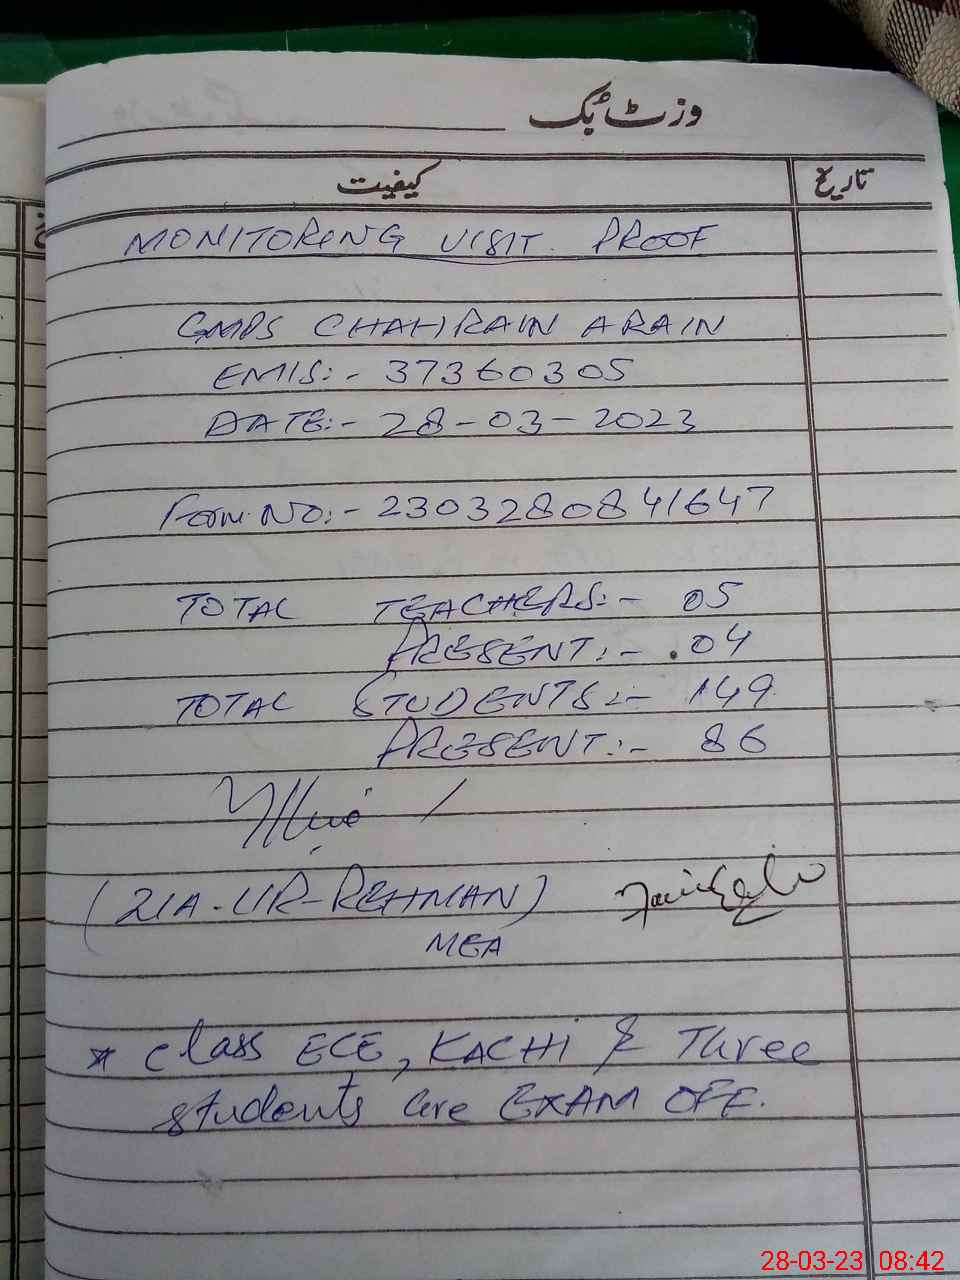 وزٹ بک
کیفیت تاریخ
MONITORING VISIT PROOF
GMPS CHAHRAIN ARAIN
EMIS:- 37360305
DATE:- 28-03-2023
Form NO:- 2303280841647
TOTAL TEACHERS:- 05
PRESENT:- .04
TOTAL STUDENTS:- 149
PRESENT:- 86
(ZIA-UR-REHMAN)
MEA
* Class ECE, KACHI & Three
students are EXAM OFF.
28-03-23 08:42